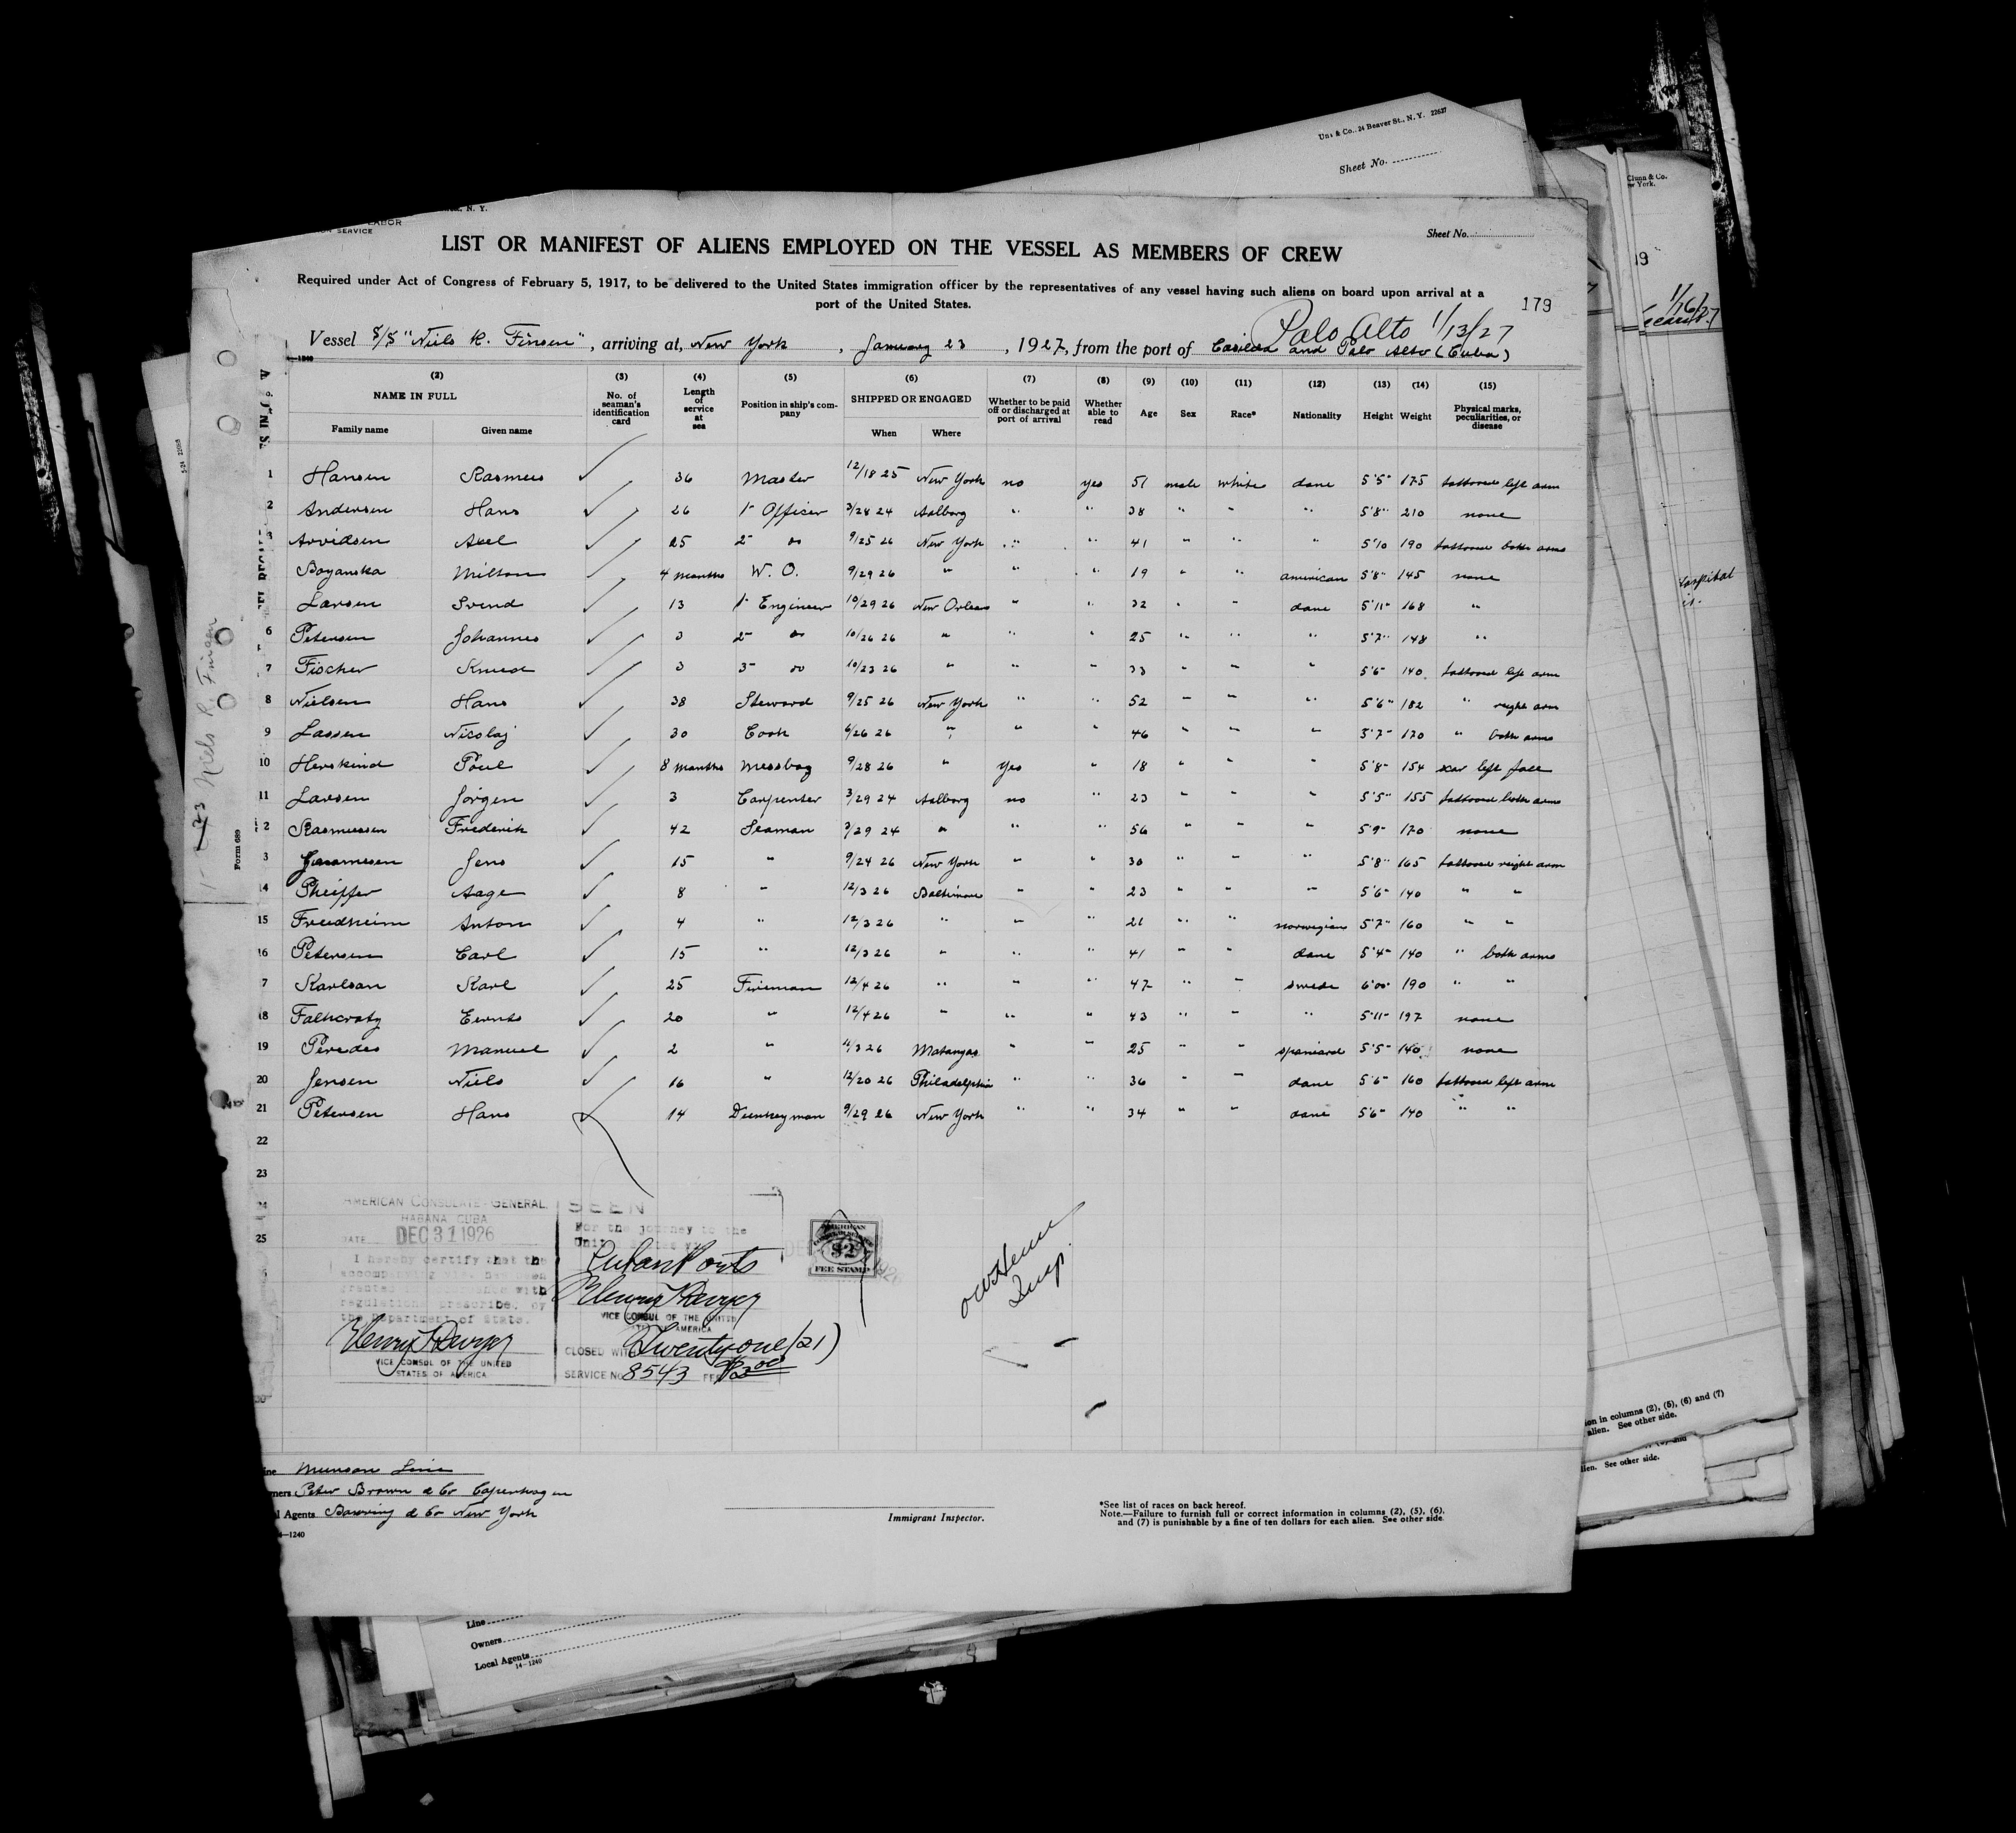 Uns & Co., 24 Beaver St., N. Y. 22627
Sheet No.
Clunn & Co.
ew York.
19
1/16/27
hospital
N. Y.
LABOR
SERVICE
Sheet No.
LIST OR MANIFEST OF ALIENS EMPLOYED ON THE VESSEL AS MEMBERS OF CREW
Required under Act of Congress of February 5, 1917, to be delivered to the United States immigration officer by the representatives of any vessel having such aliens on board upon arrival at a
port of the United States.
179
Palo Alto 1/13/27
Vessel S/S "Niels R. Finsen", arriving at, New York, January 23, 1927, from the port of Casilda and Palo Alto (Cuba)
(2) (3) (4) (5) (6) (7) (8) (9) (10) (11) (12) (13) (14) (15)
NAME IN FULL No. of seaman's identification card Length of service at sea Position in ship's company SHIPPED OR ENGAGED Whether to be paid off or discharged at port of arrival Whether able to read Age Sex Race* Nationality Height Weight Physical marks, peculiarities, or disease
Family name Given name When Where
1 Hansen Rasmus 36 Master 12/18 25 New York no yes 51 male white dane 5'5" 175 tattooed left arm
2 Andersen Hans 26 1- Officer 3/28 24 Aalborg " " 38 " " " 5'8" 210 none
3 Arvidsen Axel 25 2- do 9/25 26 New York " " 41 " " " 5'10 190 tattooed both arms
Boyanska Milton 4 months W. O. 9/29 26 " " " 19 " " american 5'8" 145 none
Larsen Svend 13 1- Engineer 10/29 26 New Orleans " " 32 " " dane 5'11" 168 "
6 Petersen Johannes 3 2- do 10/26 26 " " " 25 " " " 5'7" 148 "
7 Fischer Knud 3 3- do 10/23 26 " " " 33 " " " 5'6" 140 tattooed left arm
8 Nielsen Hans 38 Steward 9/25 26 New York " " 52 " " " 5'6" 182 " right arm
9 Lassen Nicolaj 30 Cook 6/26 26 " " " 46 " " " 5'7" 170 " both arms
10 Herskind Poul 8 months Messboy 9/28 26 " Yes " 18 " " " 5'8" 154 scar left face
11 Larsen Jörgen 3 Carpenter 3/29 24 Aalborg no " 23 " " " 5'5" 155 tattooed both arms
2 Rasmussen Frederik 42 Seaman 3/29 24 " " " 56 " " " 5'9" 170 none
3 Jens 15 " 9/24 26 New York " " 30 " " " 5'8" 165 tattooed right arm
14 Pheiffer Aage 8 " 12/3 26 Baltimore " " 23 " " " 5'6" 140 " "
15 Freidheim Anton 4 " 12/3 26 " " " 21 " " norwegian 5'7" 160 " "
16 Petersen Carl 15 " 12/3 26 " " " 41 " " dane 5'4" 140 " both arms
7 Karlson Karl 25 Fireman 12/4 26 " " " 47 " " swede 6'00" 190 " "
18 20 " 12/4 26 " " " 43 " " " 5'11" 197 none
19 Peredes Manuel 2 " 11/3 26 Matanzas " " 25 " " spaniard 5'5" 140 none
20 Jensen Niels 16 " 12/20 26 Philadelphia " " 36 " " dane 5'6" 160 tattooed left arm
21 Petersen Hans 14 Dunkeyman 9/29 26 New York " " 34 " " dane 5'6" 140 " "
22
23
24
25
AMERICAN CONSULATE-GENERAL,
HABANA CUBA
DATE DEC 31 1926
I hereby certify that the
accompanying visa has been
granted in accordance with
regulations prescribed by
the Department of State.
VICE CONSUL OF THE UNITED
STATES OF AMERICA
SEEN
For the journey to the
United States via
Cuban Ports
VICE CONSUL OF THE UNITED
STATES OF AMERICA
CLOSED WITH Twenty one (21)
SERVICE No. 8543 FEE
AMERICAN
$2
FEE STAMP
Insp.
Line Munson Line
Owners Peter Brown & Co Copenhagen
Local Agents Bowring & Co New York
14—1240
Immigrant Inspector.
*See list of races on back hereof.
Note.—Failure to furnish full or correct information in columns (2), (5), (6),
and (7) is punishable by a fine of ten dollars for each alien. See other side.
1-23 Niels R. Finsen
Form 689
ion in columns (2), (5), (6) and (7)
alien. See other side.
lien. See other side.
Line
Owners
Local Agents
14—1240